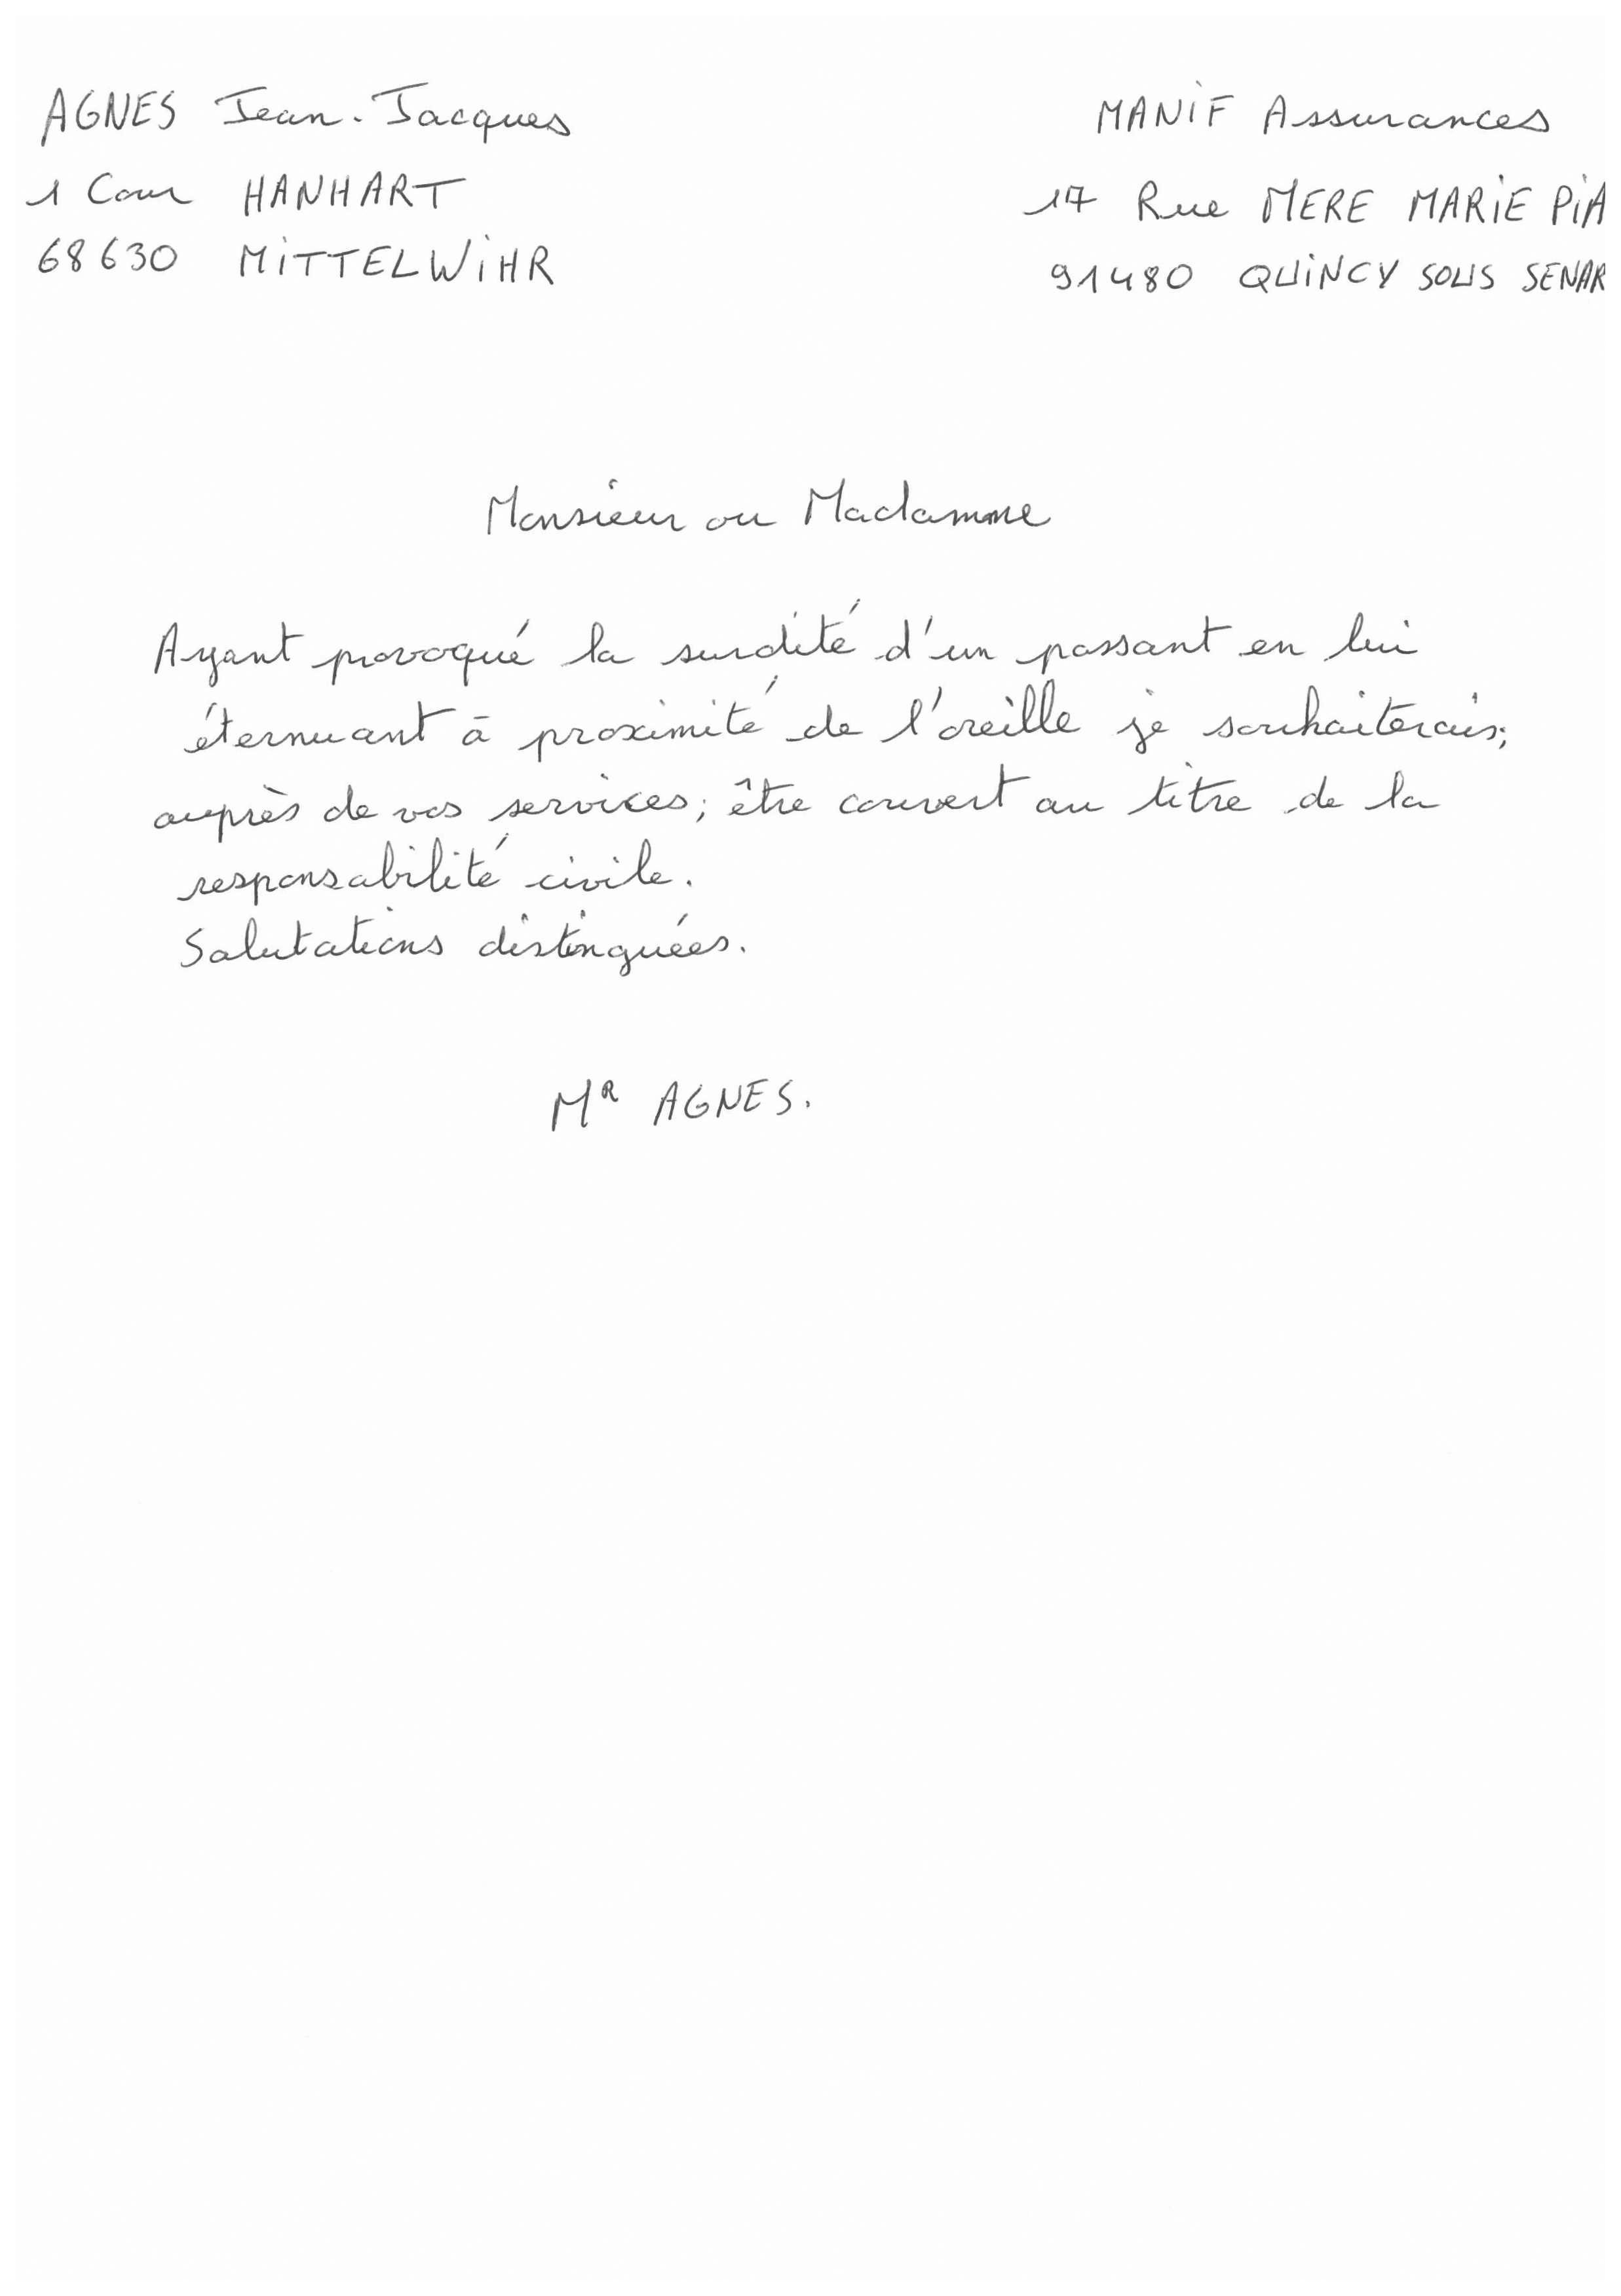 AGNES Jean-Jacques
1 Cour HANHART
68630 MITTELWIHR
MANIF Assurances
17 Rue MERE MARIE PIA
91480 QUINCY SOUS SENAR
Monsieur ou Madamme
Ayant provoqué la surdité d'un passant en lui
éternuant à proximité de l'oreille je souhaiterais;
auprès de vos services; être couvert au titre de la
responsabilité civile.
Salutations distinguées.
MR AGNES.